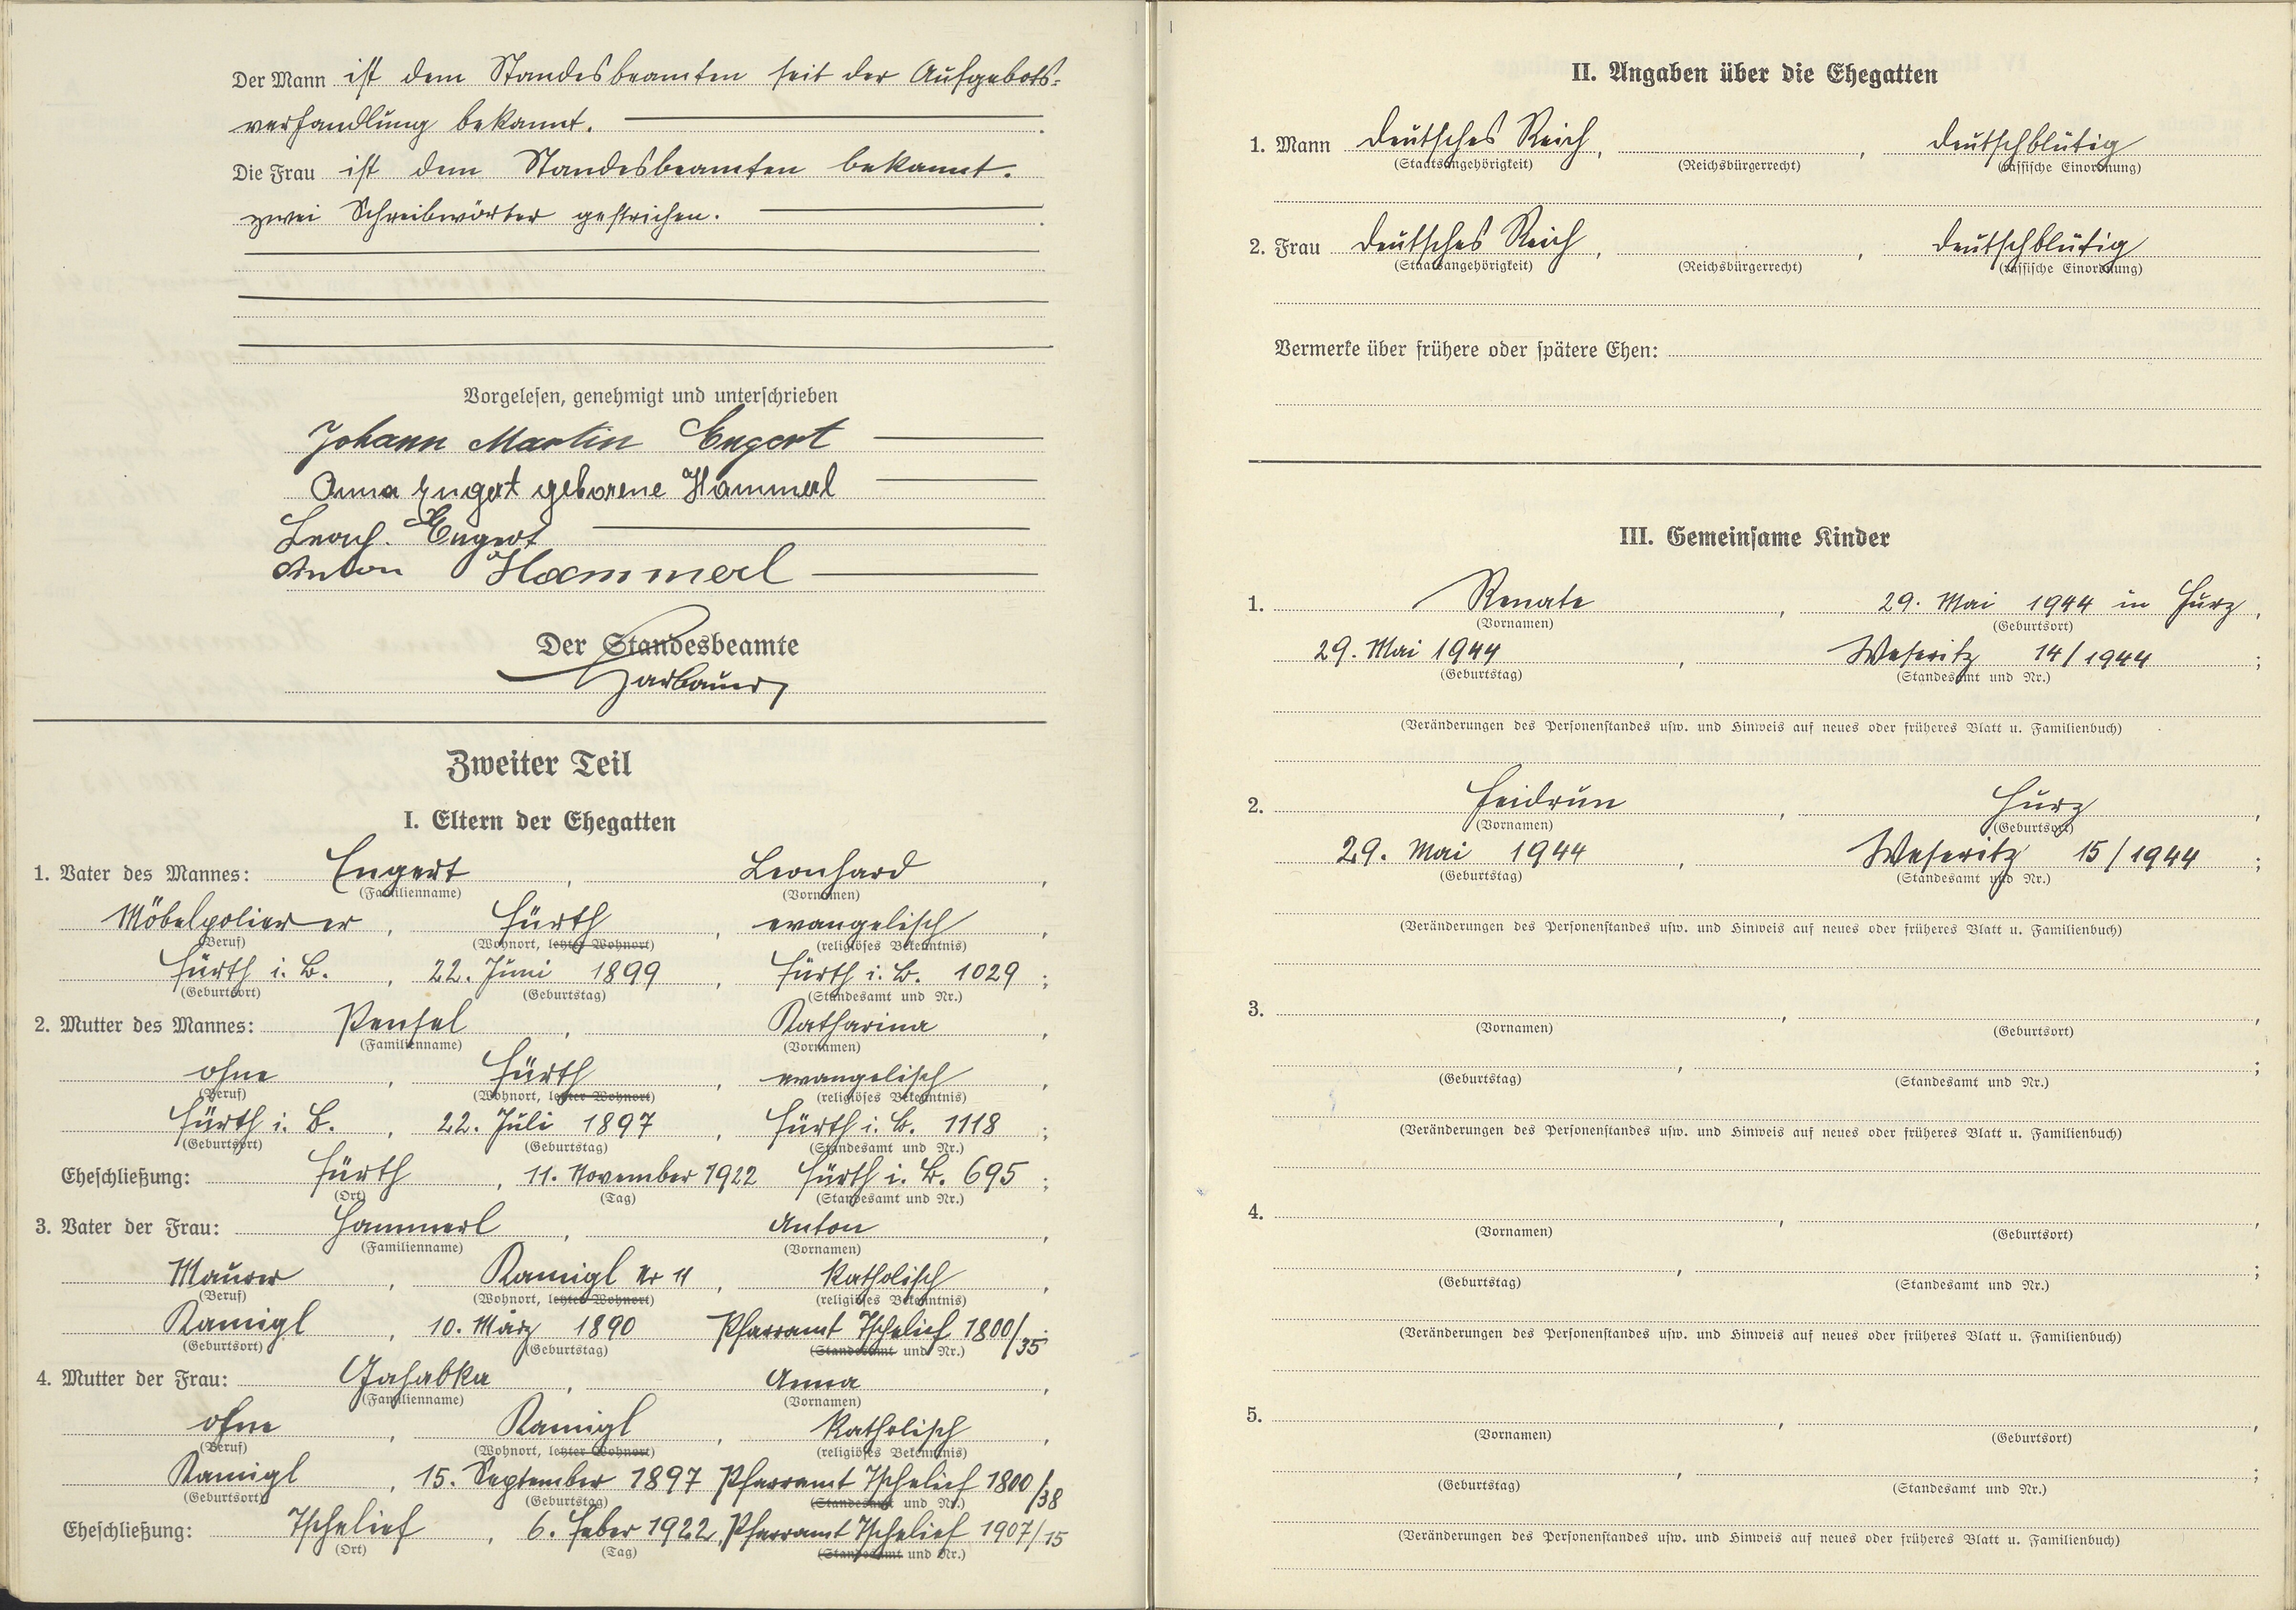 Der Mann ist dem Standesbeamten seit der Aufgebots-
verhandlung bekannt.
Die Frau ist dem Standesbeamten bekannt.
zwei Schreibwörter gestrichen.
Vorgelesen, genehmigt und unterschrieben
Johann Martin Engert
Anna Engert geborene Hammerl
Leonh. Engert
Anton Hammerl
Der Standesbeamte
Zweiter Teil
I. Eltern der Ehegatten
1. Vater des Mannes: Engert, Leonhard,
(Familienname) (Vornamen)
Möbelpolierer, Fürth, evangelisch,
(Beruf) (Wohnort, letzter Wohnort) (religiöses Bekenntnis)
Fürth i. B., 22. Juni 1899, Fürth i. B. 1029;
(Geburtsort) (Geburtstag) (Standesamt und Nr.)
2. Mutter des Mannes: Pensel, Katharina,
(Familienname) (Vornamen)
ohne, Fürth, evangelisch,
(Beruf) (Wohnort, letzter Wohnort) (religiöses Bekenntnis)
Fürth i. B., 22. Juli 1897, Fürth i. B. 1118;
(Geburtsort) (Geburtstag) (Standesamt und Nr.)
Eheschließung: Fürth, 11. November 1922 Fürth i. B. 695;
(Ort) (Tag) (Standesamt und Nr.)
3. Vater der Frau: Hammerl, Anton,
(Familienname) (Vornamen)
Maurer, Ramigl Nr 11, katholisch,
(Beruf) (Wohnort, letzter Wohnort) (religiöses Bekenntnis)
Ramigl, 10. März 1890 Pfarramt Tschelief 1800/35;
(Geburtsort) (Geburtstag) (Standesamt und Nr.)
4. Mutter der Frau: Gahabka, Anna,
(Familienname) (Vornamen)
ohne, Ramigl, katholisch,
(Beruf) (Wohnort, letzter Wohnort) (religiöses Bekenntnis)
Ramigl, 15. September 1897 Pfarramt Tschelief 1800/38
(Geburtsort) (Geburtstag) (Standesamt und Nr.)
Eheschließung: Tschelief, 6. Feber 1922, Pfarramt Tschelief 1907/15
(Ort) (Tag) (Standesamt und Nr.)
II. Angaben über die Ehegatten
1. Mann Deutsches Reich, , deutschblütig
(Staatsangehörigkeit) (Reichsbürgerrecht) (rassische Einordnung)
2. Frau Deutsches Reich, , deutschblütig
(Staatsangehörigkeit) (Reichsbürgerrecht) (rassische Einordnung)
Vermerke über frühere oder spätere Ehen:
III. Gemeinsame Kinder
1. Renate, 29. Mai 1944 in Hurz,
(Vornamen) (Geburtsort)
29. Mai 1944, Weseritz 14/1944;
(Geburtstag) (Standesamt und Nr.)
(Veränderungen des Personenstandes usw. und Hinweis auf neues oder früheres Blatt u. Familienbuch)
2. Heidrun, Hurz,
(Vornamen) (Geburtsort)
29. Mai 1944, Weseritz 15/1944;
(Geburtstag) (Standesamt und Nr.)
(Veränderungen des Personenstandes usw. und Hinweis auf neues oder früheres Blatt u. Familienbuch)
3. , ,
(Vornamen) (Geburtsort)
, ;
(Geburtstag) (Standesamt und Nr.)
(Veränderungen des Personenstandes usw. und Hinweis auf neues oder früheres Blatt u. Familienbuch)
4. , ,
(Vornamen) (Geburtsort)
, ;
(Geburtstag) (Standesamt und Nr.)
(Veränderungen des Personenstandes usw. und Hinweis auf neues oder früheres Blatt u. Familienbuch)
5. , ,
(Vornamen) (Geburtsort)
, ;
(Geburtstag) (Standesamt und Nr.)
(Veränderungen des Personenstandes usw. und Hinweis auf neues oder früheres Blatt u. Familienbuch)